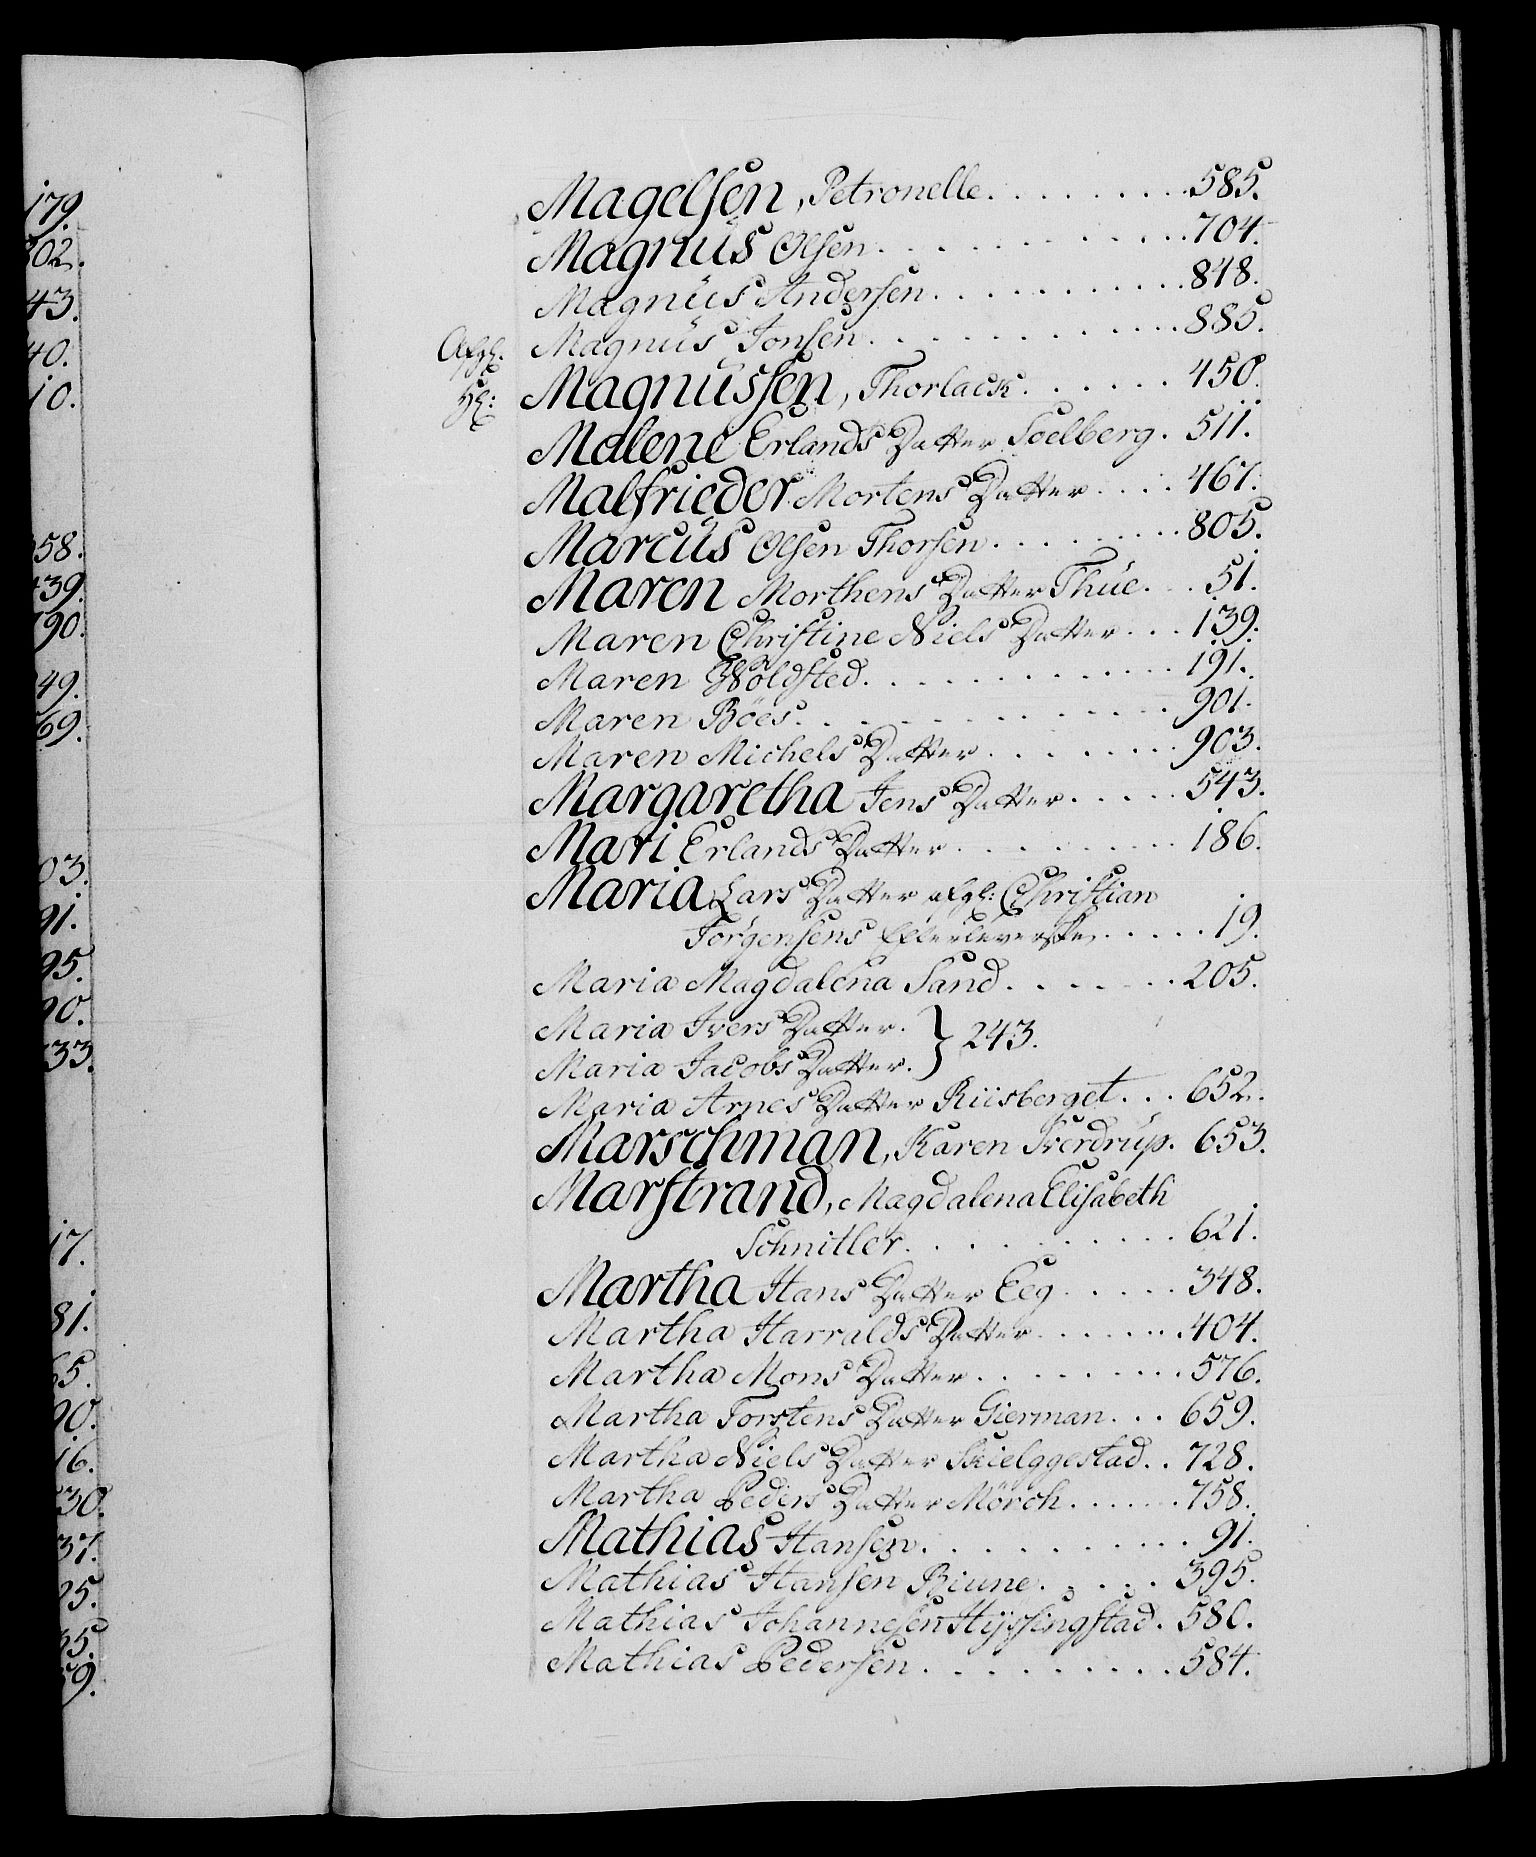 179.
302.
43.
40.
10.
58.
439.
790.
49.
569.
03.
91.
95.
90.
33.
17.
81.
65.
90.
16.
30.
37.
25.
35.
59.
Magelsen, Petronelle. . . . . . . . . 585.
Magnüs Olsen . . . . . . . . . . . . 704.
Magnüs Andersen . . . . . . . . . . . 848.
Afgl. Magnüs Jonsen . . . . . . . . . . . 885.
Hl: Magnüssen, Thorlack . . . . . . 450.
Malene Erlands Datter Soelberg . 511.
Malfrieder Mortens Datter . . . . 467.
Marcüs Olsen Thorsen . . . . . . . . 805.
Maren Morthens Datter Thüe . . . 51.
Maren Christine Niels Datter . . . 139.
Maren Woldsted . . . . . . . . . . . . 191.
Maren Böes . . . . . . . . . . . . . 901.
Maren Michels Datter . . . . . . . . 903.
Margaretha Jens Datter . . . . . 543.
Mari Erlands Datter . . . . . . . . . 186.
Maria Lars Datter afgl: Christian
Jörgensens Efterleverske . . . . . 19.
Maria Magdalena Sand . . . . . . . 205.
Maria Ivers Datter. } 243.
Maria Jacobs Datter.
Maria Arnes Datter Riisberget . . . 652.
Marschman, Karen Sverdrup. 653.
Marstrand, Magdalena Elisabeth
Schnitler . . . . . . . . . . . 621.
Martha Hans Datter Eeg . . . . . 348.
Martha Harralds Datter . . . . . . . 404.
Martha Mons Datter . . . . . . . . . 576.
Martha Torstens Datter Gierman . . . 659.
Martha Niels Datter Skielggestad . . 728.
Martha Peders Datter Mörch . . . . . . 758.
Mathias Hansen . . . . . . . . . . . 91.
Mathias Hansen Biune . . . . . 395.
Mathias Johannesen Hyssingstad . 580.
Mathias Pedersen . . . . . . . . . . 584.